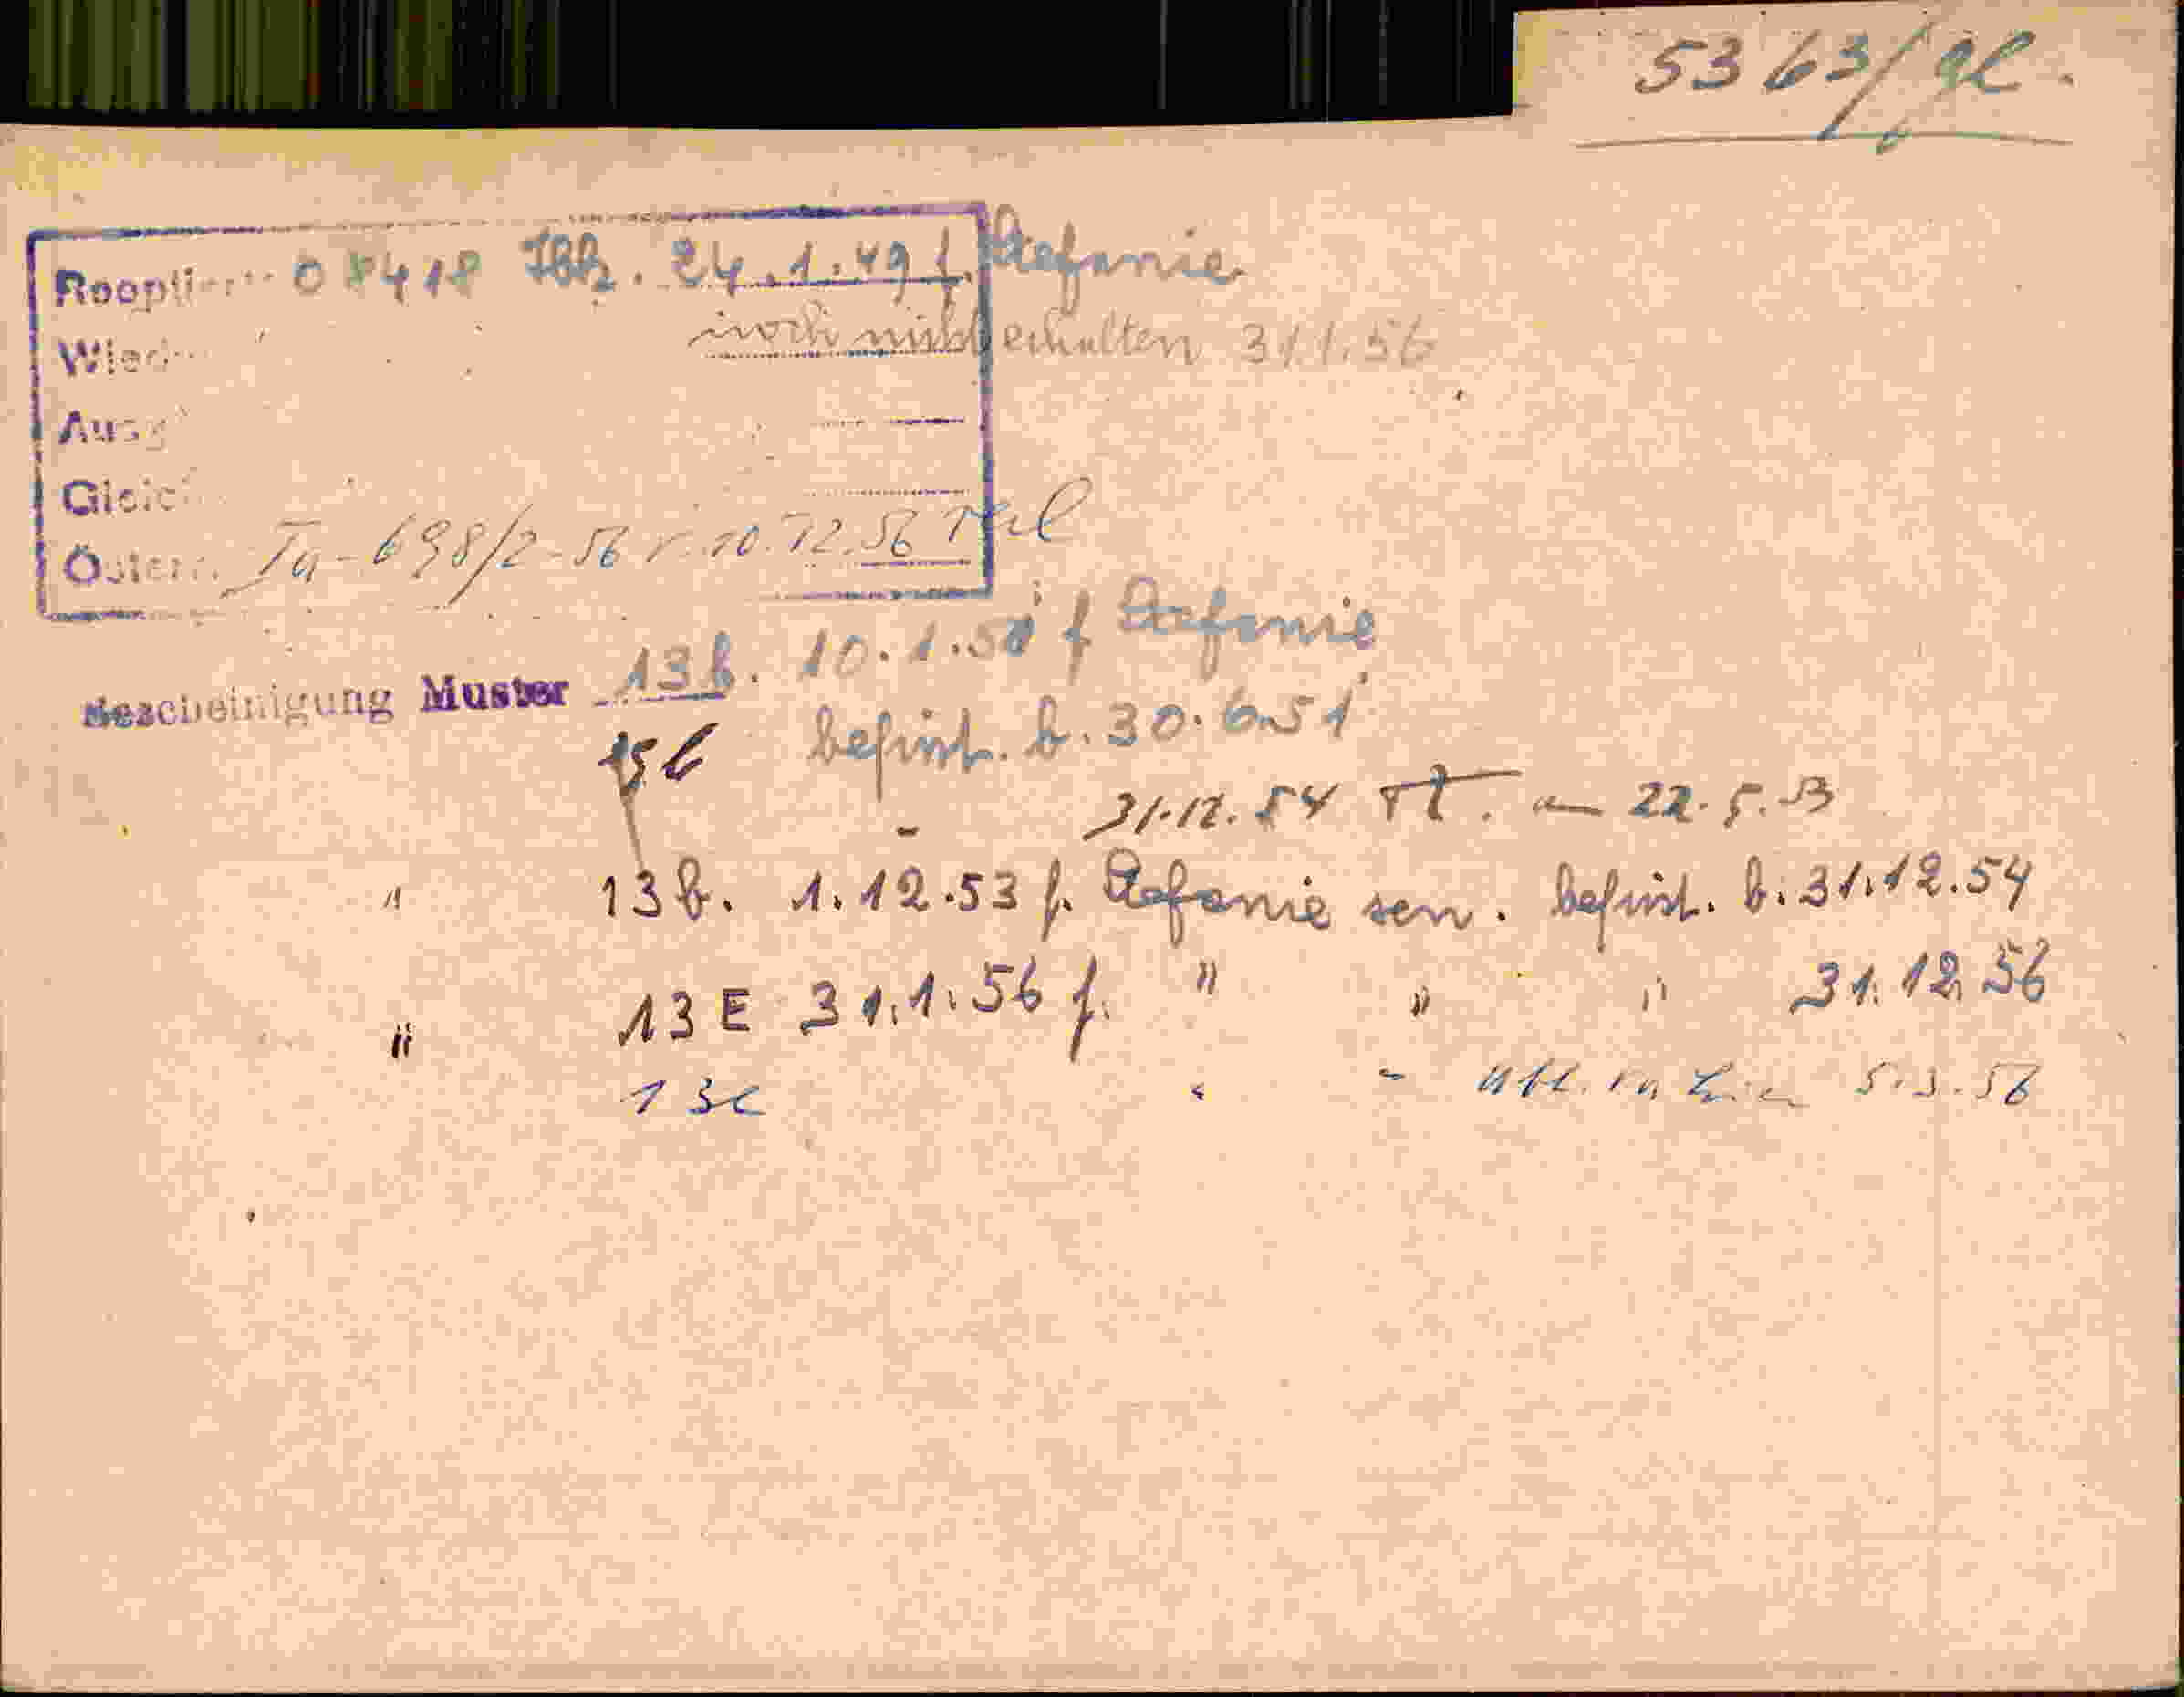 5363/
Reoptiert 08418 Ibk. 24.1.49 f. Stefanie
noch nicht erhalten 31.1.56
Wied
Ausg
Gleich
Österr. Ia-698/2-56 v. 10.12.56
Bescheinigung Muster 13b. 10.1.51 f Stefanie
15b befrist. b. 30.6.51
31.12.54 22.5.53
" 13b. 1.12.53 f. Stefanie sen. befrist. b. 31.12.54
" 13E 31.1.56 f. " " " 31.12.56
13c " 5.3.56